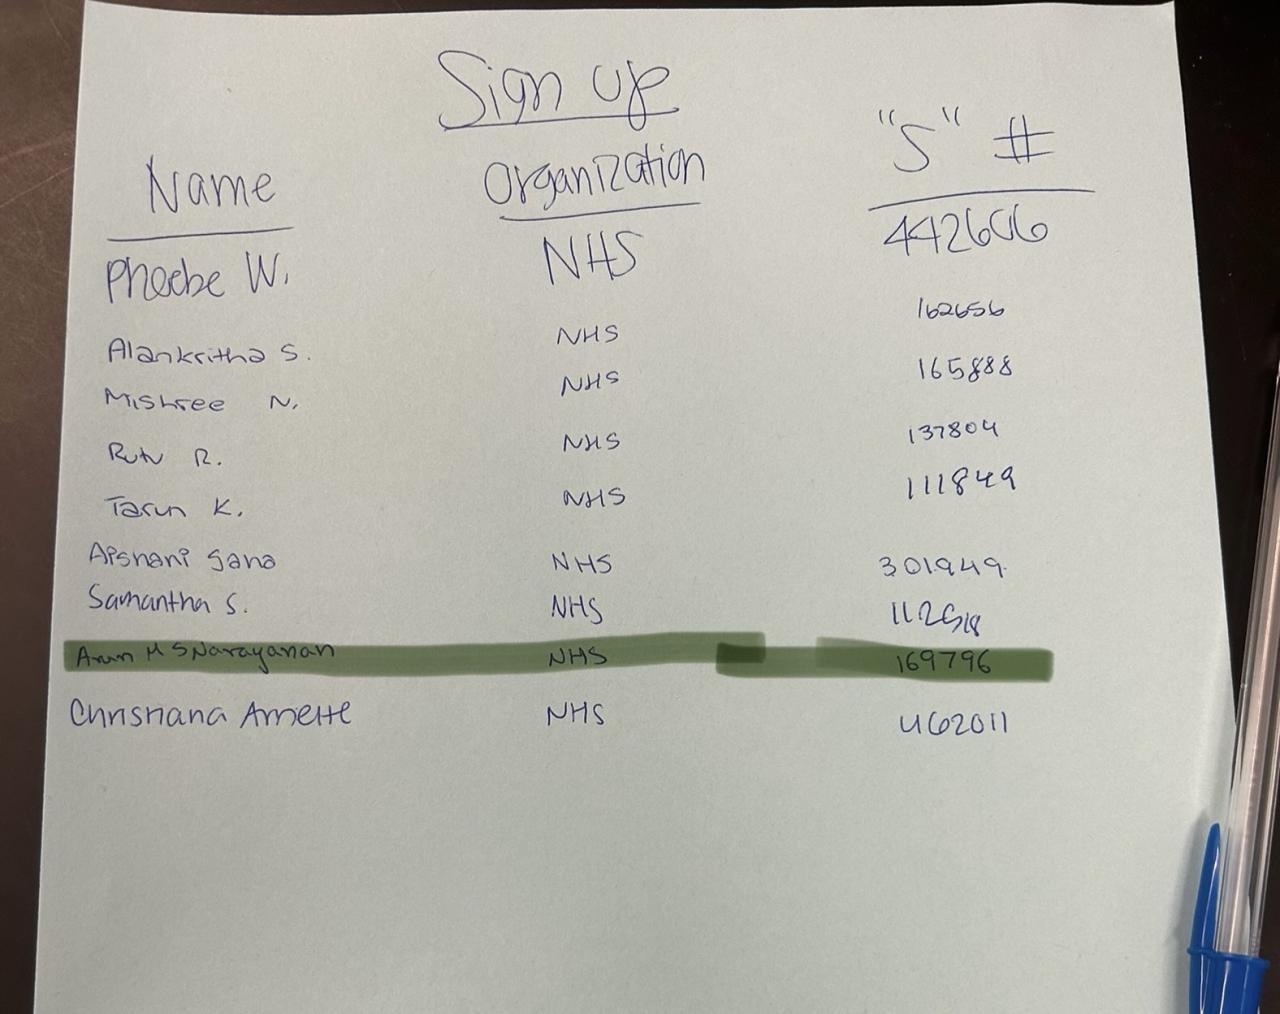 Sign up
Name Organization "S" #
Phoebe W. NHS 442606
Alankritha S. NHS 162656
Mishree N. NHS 165888
Rutv R. NHS 137804
Tarun K. NHS 111849
Aishani Jana NHS 301949
Samantha S. NHS
Arun M S Narayanan NHS 169796
Christiana Arnette NHS 462011